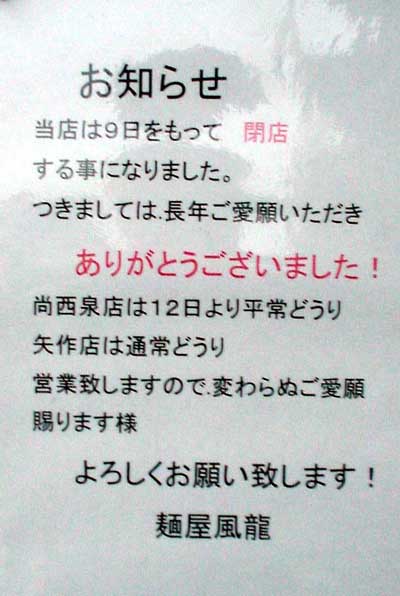 お知らせ
当店は９日をもって　閉店
する事になりました。
つきましては．長年ご愛願いただき
ありがとうございました！
尚西泉店は１２日より平常どうり
矢作店は通常どうり
営業致しますので．変わらぬご愛願
賜ります様
よろしくお願い致します！
麺屋風龍